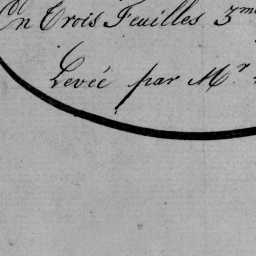 En Trois Feuilles 3me
Levée par Mr